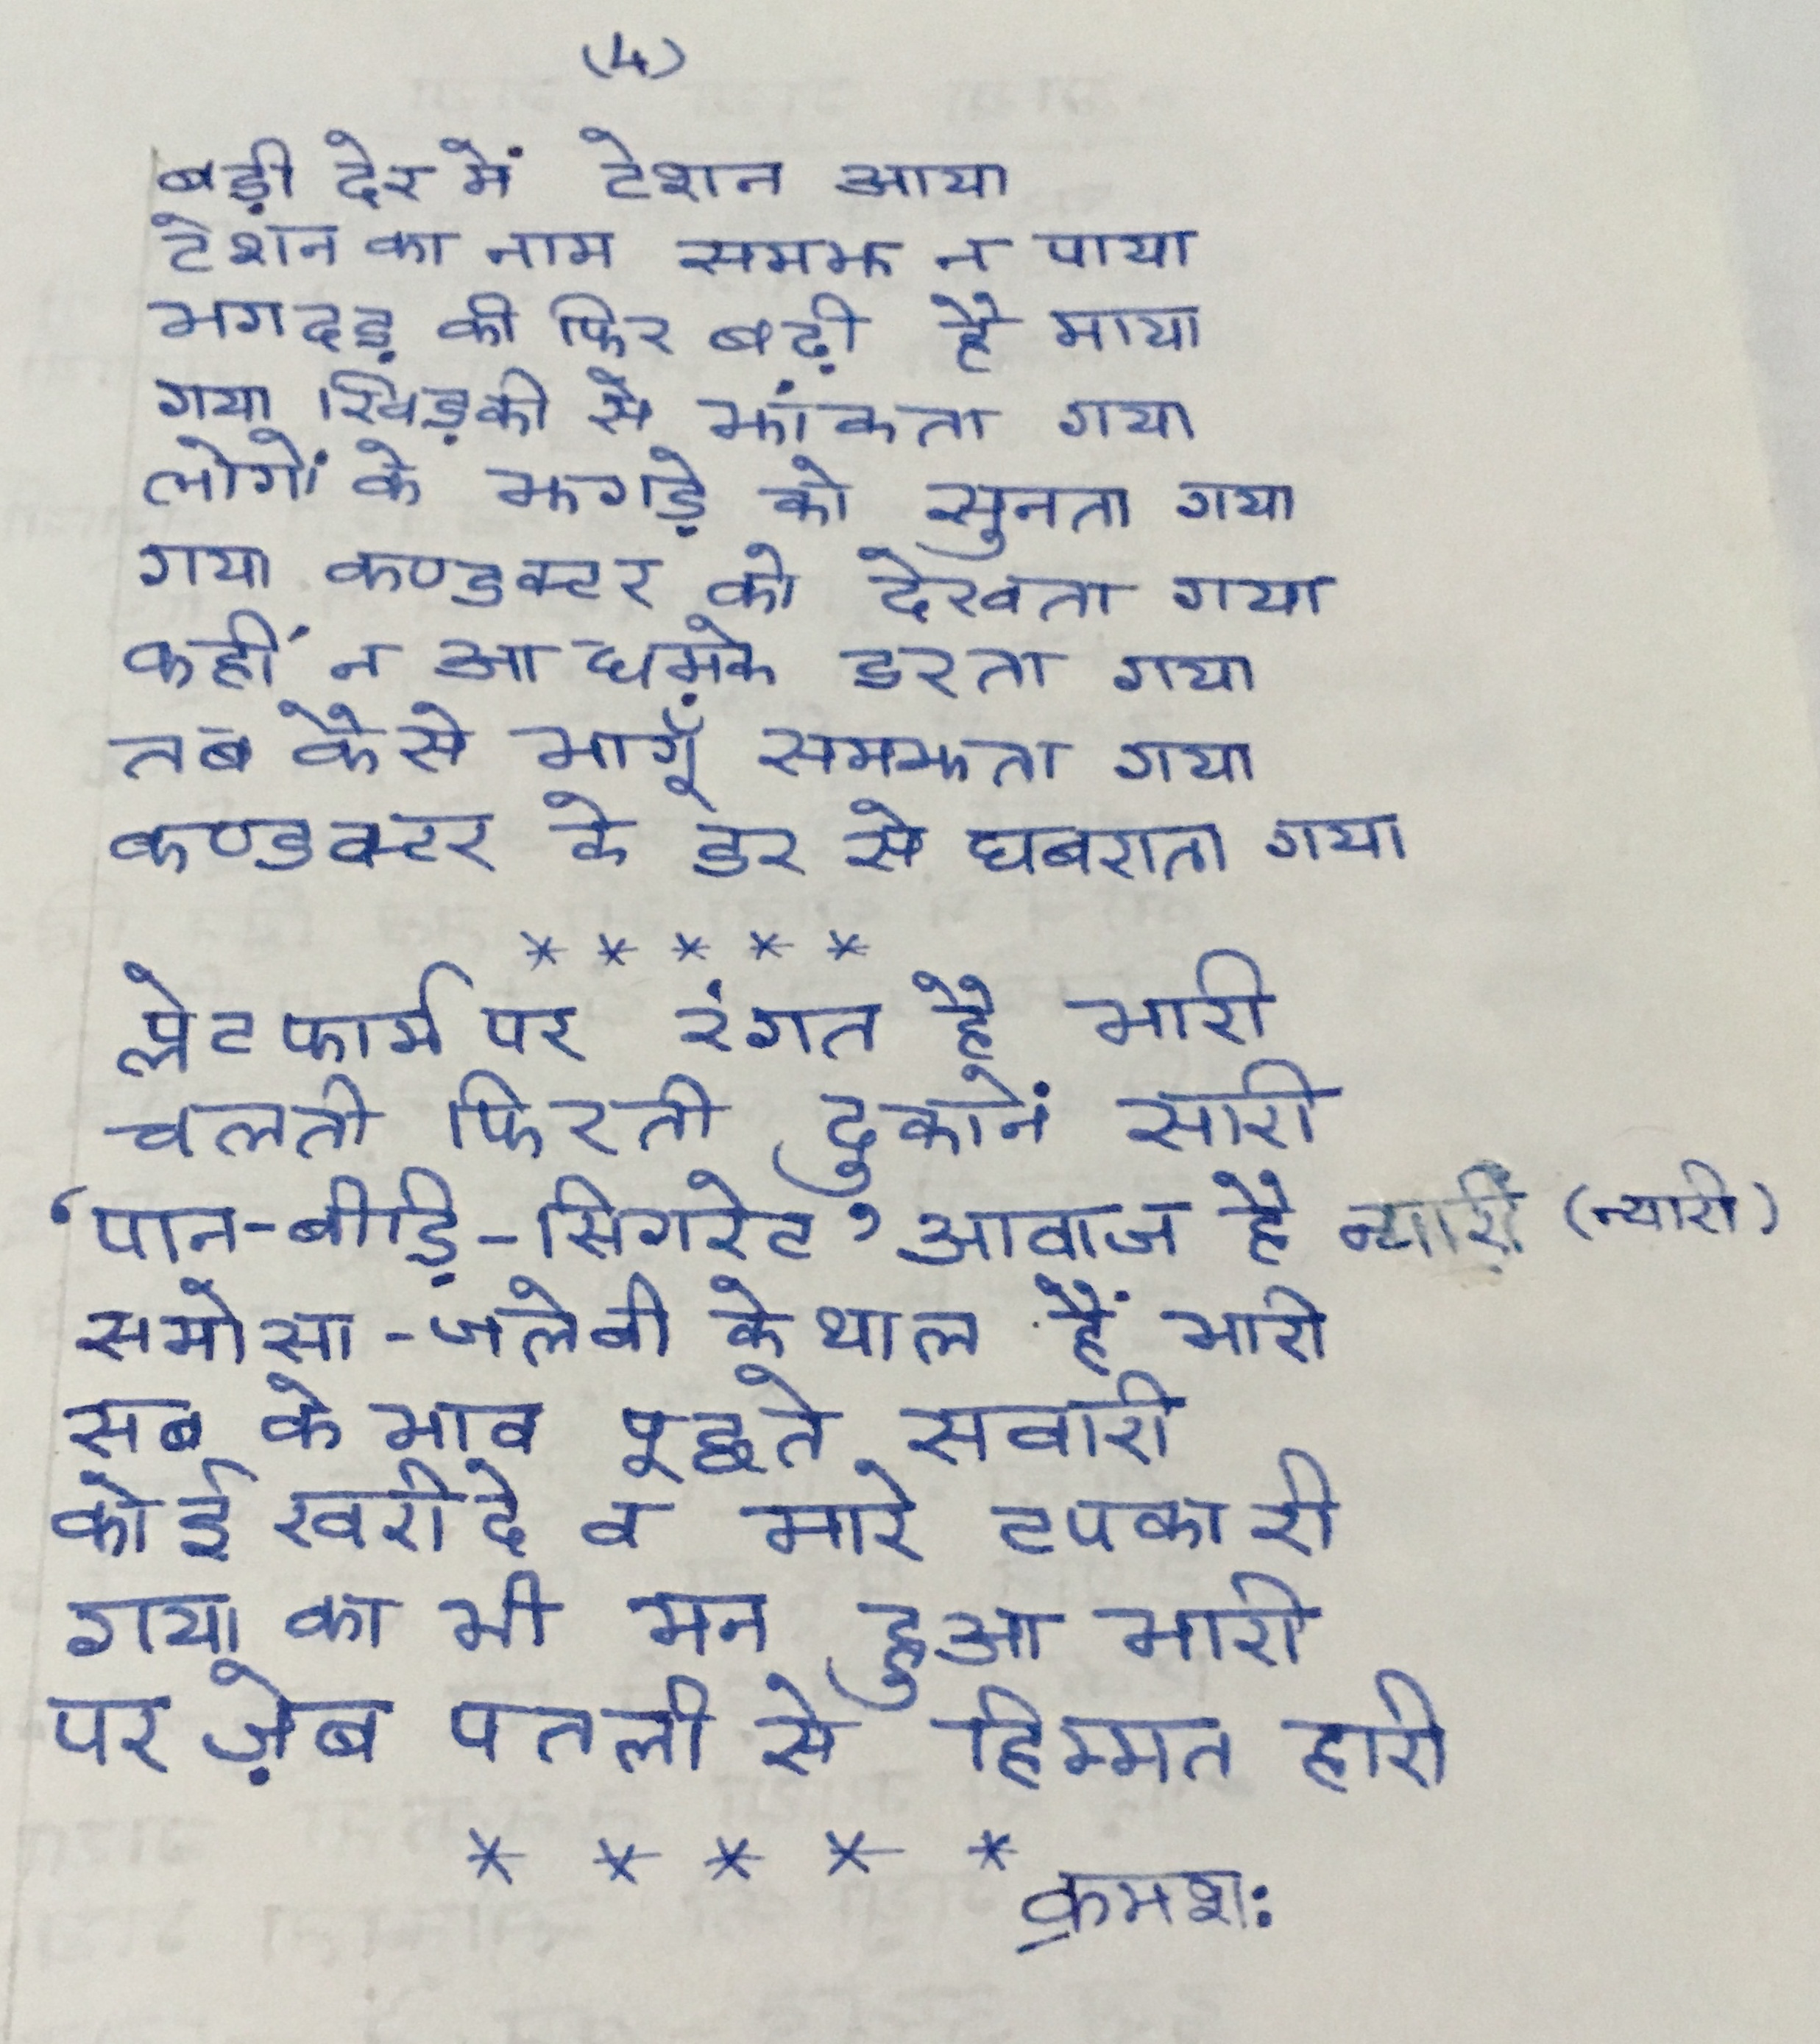 (4)
बड़ी देर में टेशन आया
टेशन का नाम समझ न पाया
भगदड़ की फिर बढ़ी है माया
गया खिड़की से झांकता गया
लोगों के झगड़े को सुनता गया
गया कण्डक्टर को देखता गया
कहीं न आ धम़के डरता गया
तब कैसे भागूँ समझता गया
कण्डक्टर के डर से घबराता गया
* * * * *
प्लेटफार्म पर रंगत है भारी
चलती फिरती दुकानें सारी
‘पान-बीड़ि-सिगरेट’ आवाज है न्यारी (न्यारी)
समोसा-जलेबी के थाल हैं भारी
सब के भाव पूछते सवारी
कोई खरीदे व मारे टपकारी
गया का भी मन हुआ भारी
पर ज़ेब पतली से हिम्मत हारी
* * * * *
क्रमशः